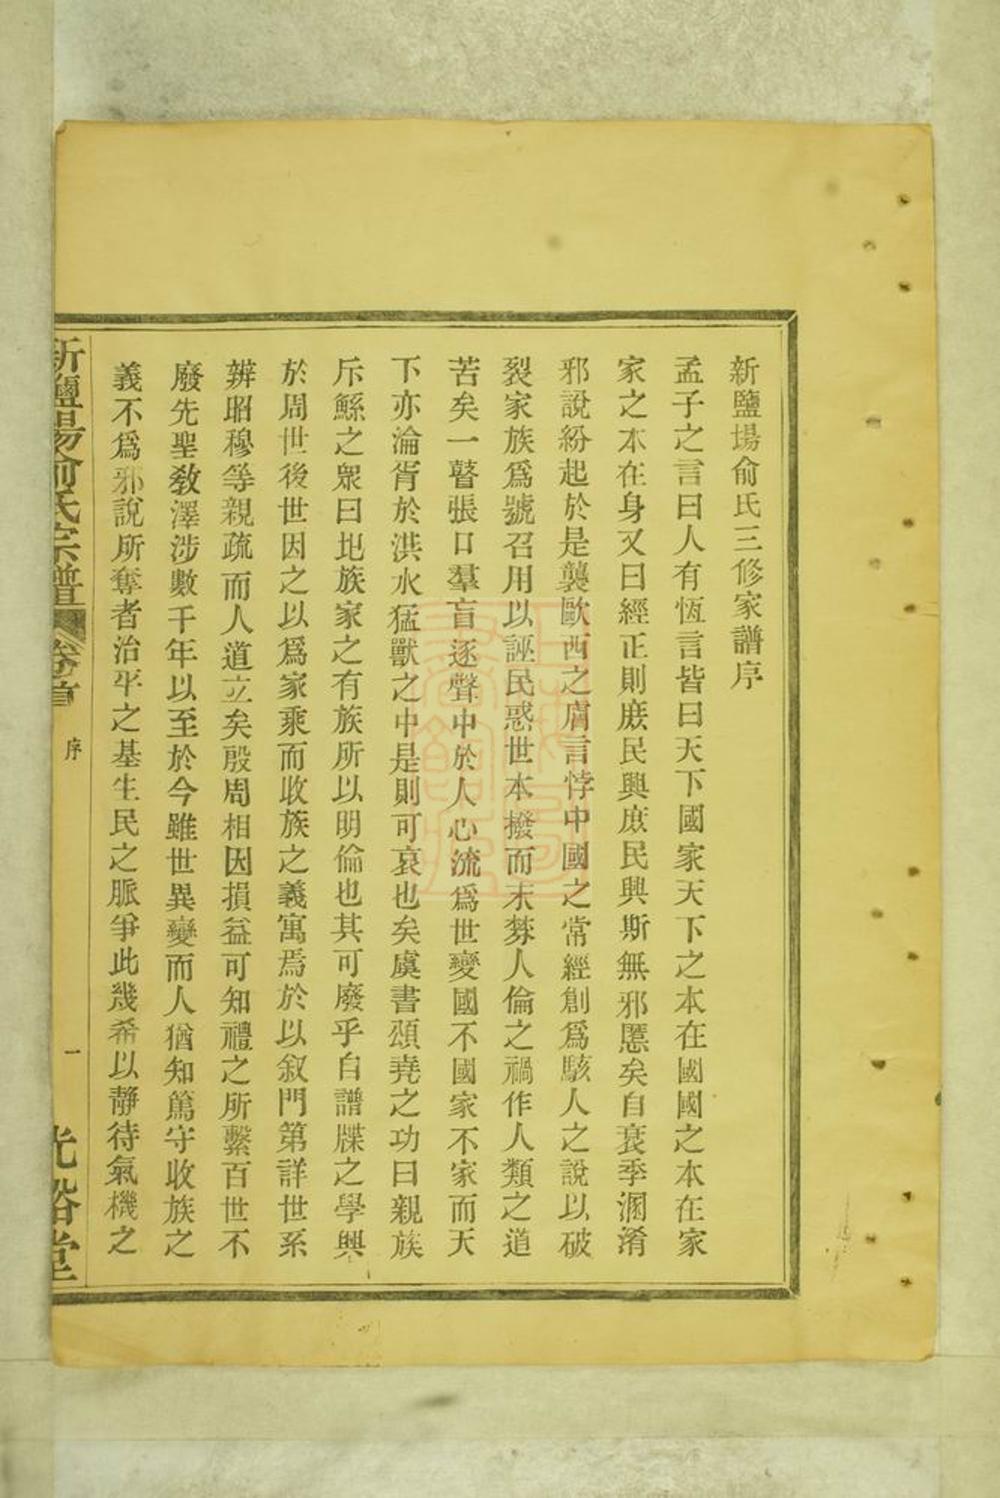 新鹽場俞氏三修家譜序
孟子之言曰人有恆言皆曰天下國家天下之本在國國之本在家
家之本在身又曰經正則庶民興庶民興斯無邪慝矣自衰季溷淆
邪說紛起於是襲歐西之膚言悖中國之常經創爲駭人之說以破
裂家族爲號召用以誣民惑世本撥而末棼人倫之禍作人類之道
苦矣一瞽張口羣盲逐聲中於人心流爲世變國不國家不家而天
下亦淪胥於洪水猛獸之中是則可哀也矣虞書頌堯之功曰親族
斥鯀之衆曰圮族家之有族所以明倫也其可廢乎自譜牒之學興
於周世後世因之以爲家乘而收族之義寓焉於以叙門第詳世系
辨昭穆等親疏而人道立矣殷周相因損益可知禮之所繫百世不
廢先聖敎澤涉數千年以至於今雖世異變而人猶知篤守收族之
義不爲邪說所奪者治平之基生民之脈爭此幾希以靜待氣機之
新鹽場俞氏宗譜
卷首
序
一
光裕堂